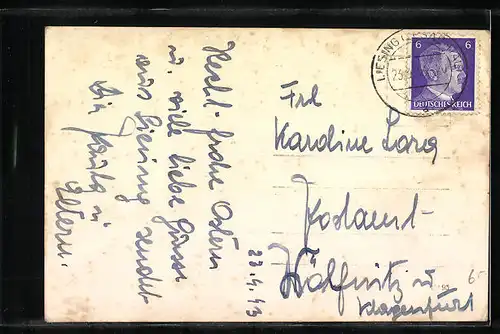 Recht frohe Ostern
u. viele liebe Grüsse
aus Liesing sendet
Eltern.
23.4.43
LIESING
6 6
DEUTSCHES REICH
Frl
Karoline Lang
Postamt
Wölfnitz u
Klagenfurt